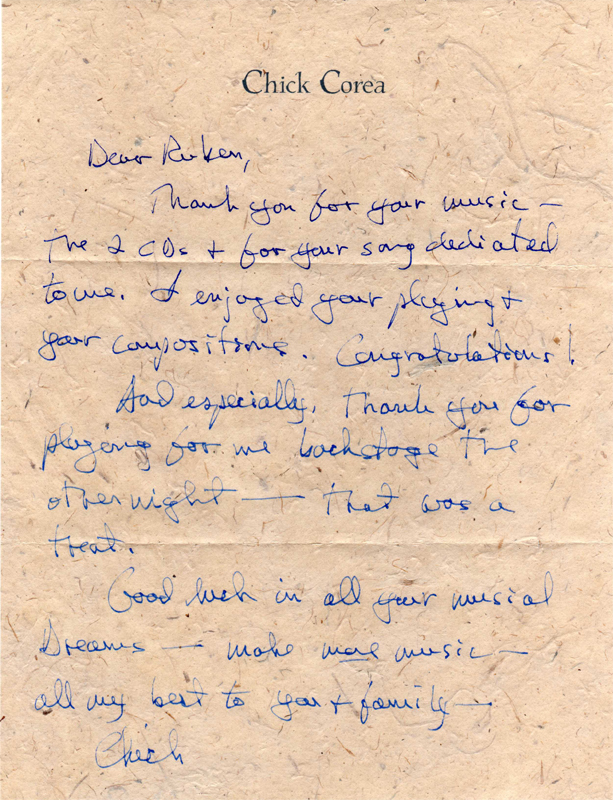 Chick Corea
Dear Ruben,
Thank you for your music –
The 2 CDs + for your song dedicated
to me. I enjoyed your playing +
your compositions. Congratulations!
And especially, thank you for
playing for me backstage the
other night — that was a
treat.
Good luck in all your musical
Dreams — make more music —
all my best to you + family —
Chick